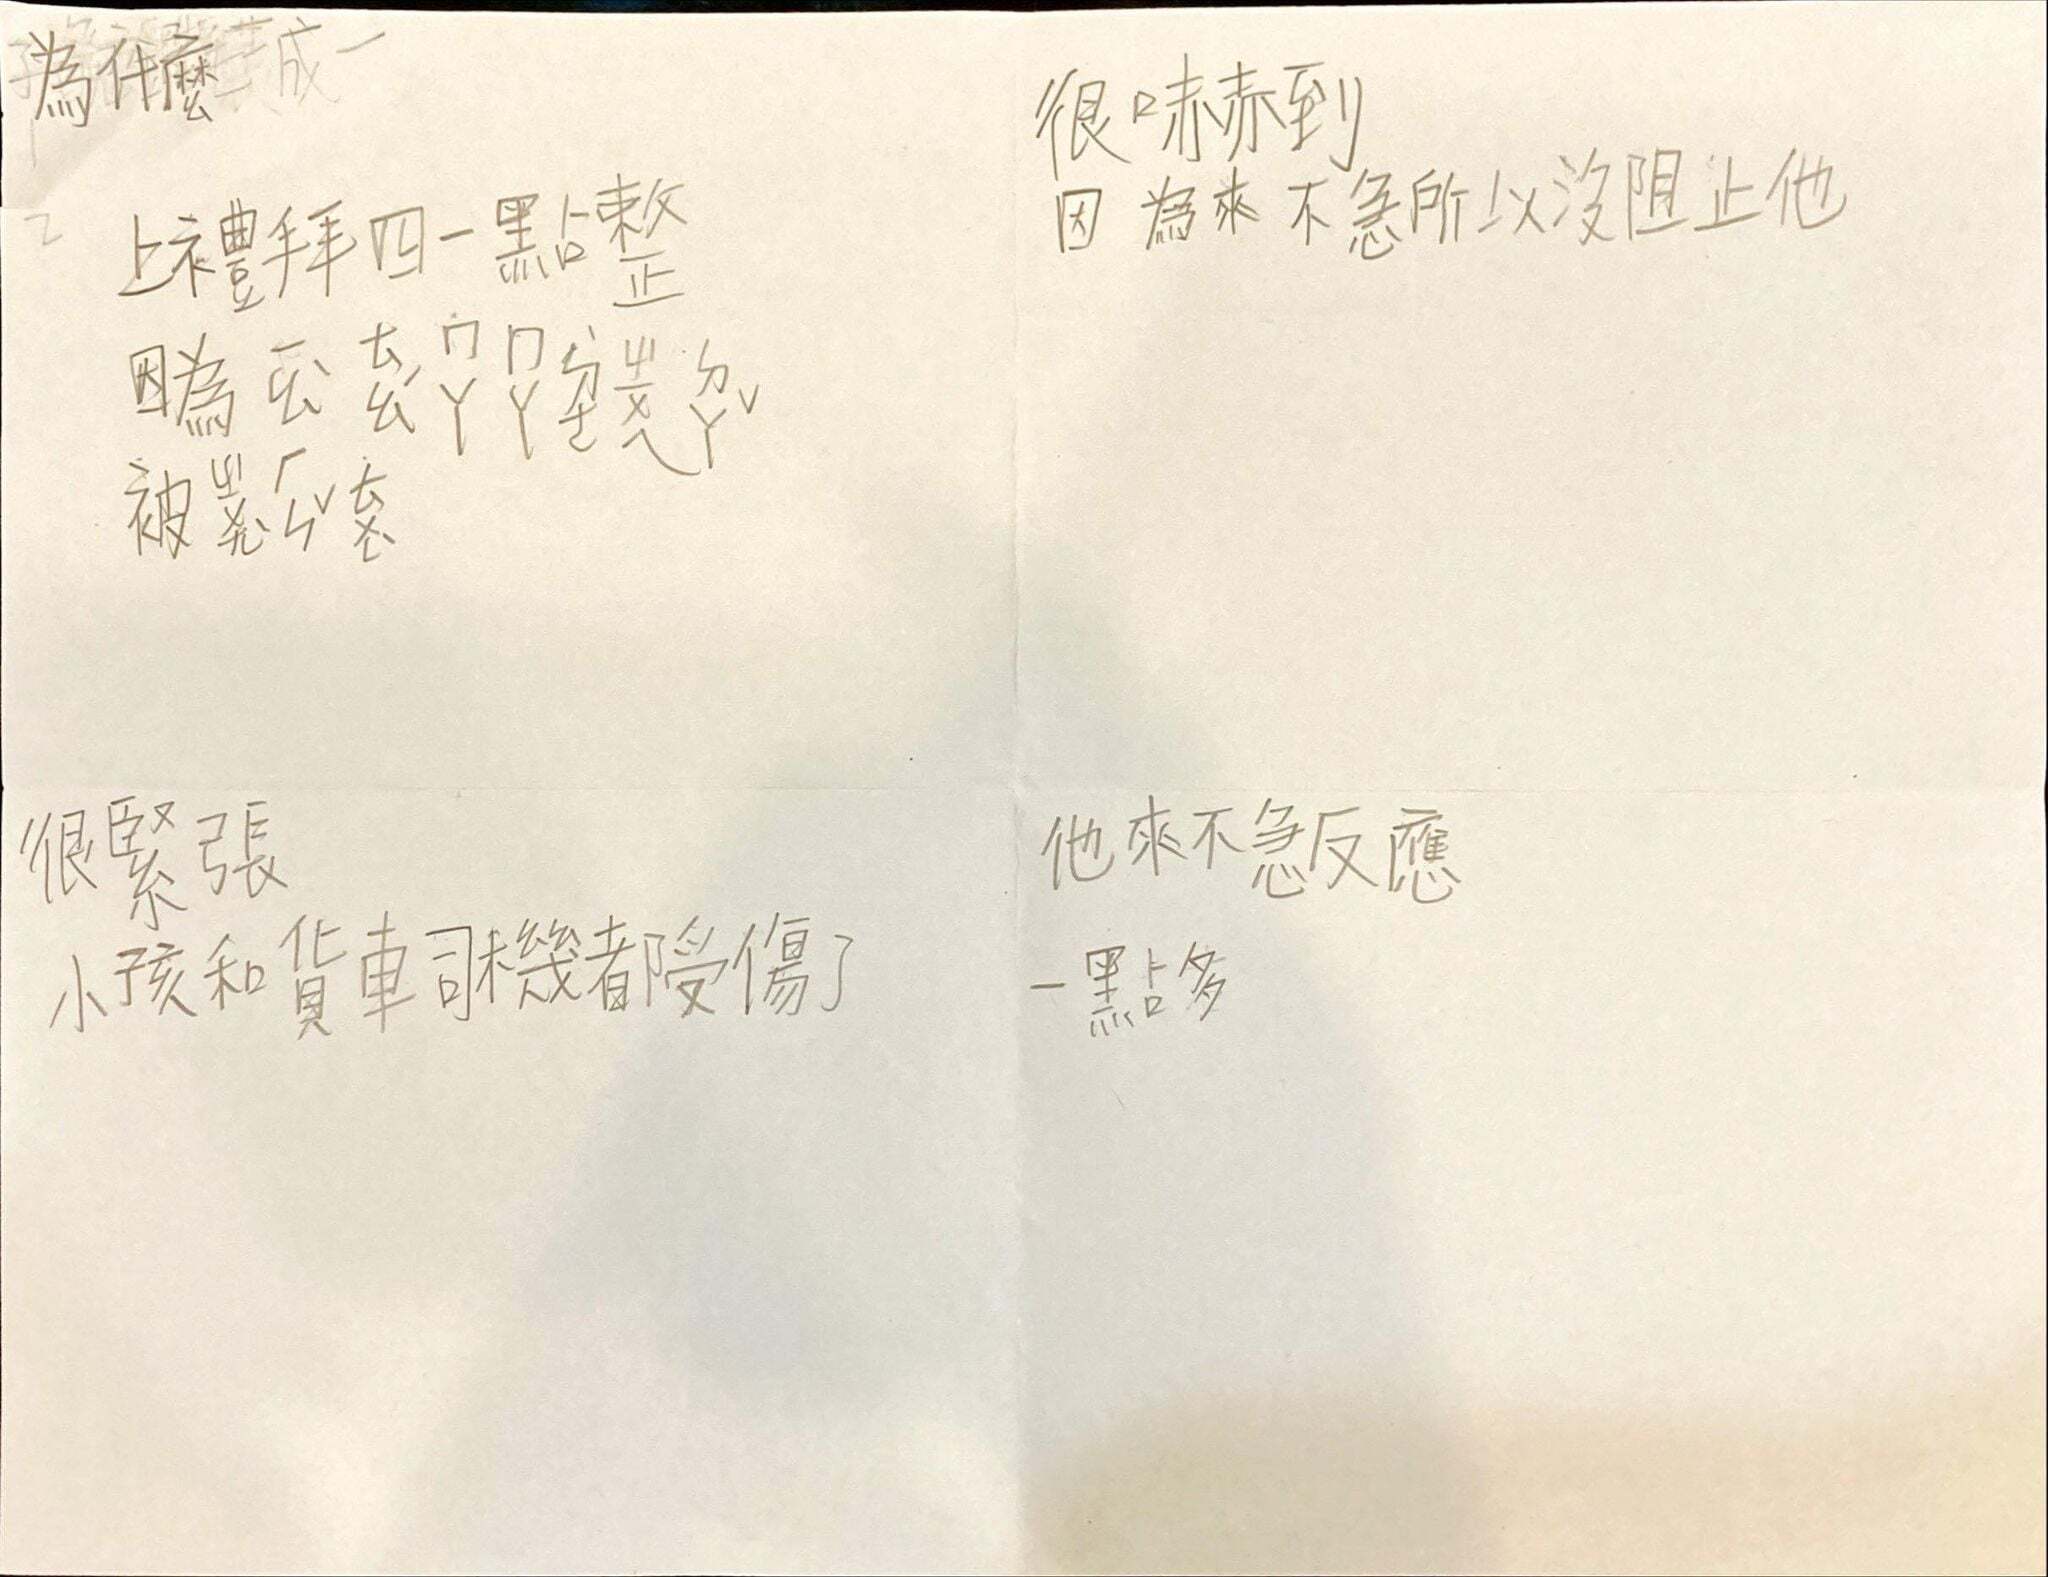 為什麼
上禮拜四一點整
因為ㄊㄠˊㄇㄚㄇㄚ
被ㄓㄨㄤ
很嚇到
因為來不急所以沒阻止他
很緊張
小孩和貨車司機都受傷了
他來不急反應
一點多